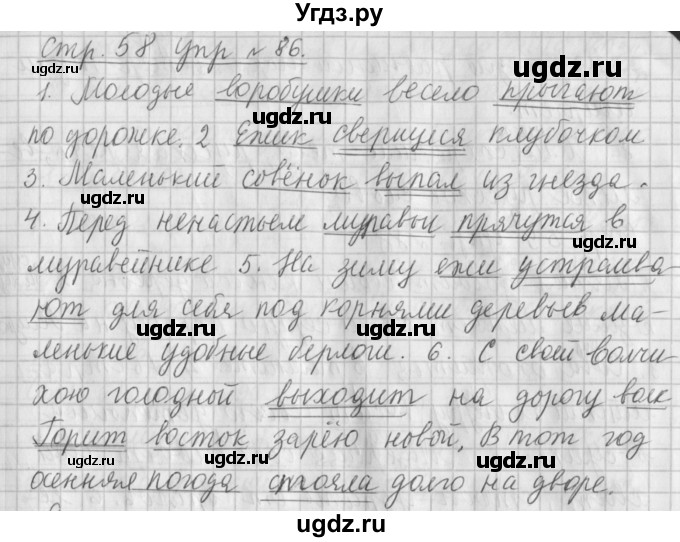 Угдз.ру
Стр. 58 упр № 86.
ugdz.ru ugdz.ru
1. Молодые воробушки весело прыгают
по дорожке. 2 Ёжик свернулся клубочком
3. Маленький совёнок выпал из гнезда.
ugdz.ru
4. Перед ненастьем муравьи прячутся в
ugdz.ru
муравейнике 5. На зиму ежи устраива-
ют для себя под корнями деревьев ма-
ugdz.ru ugdz.ru
ленькие удобные берлоги. 6. С своей волчи-
хою голодной выходит на дорогу волк
ugdz.ru
Горит восток зарёю новой, В тот год
осенняя погода стояла долго на дворе.
ugdz.ru ugdz.ru
ugdz.ru